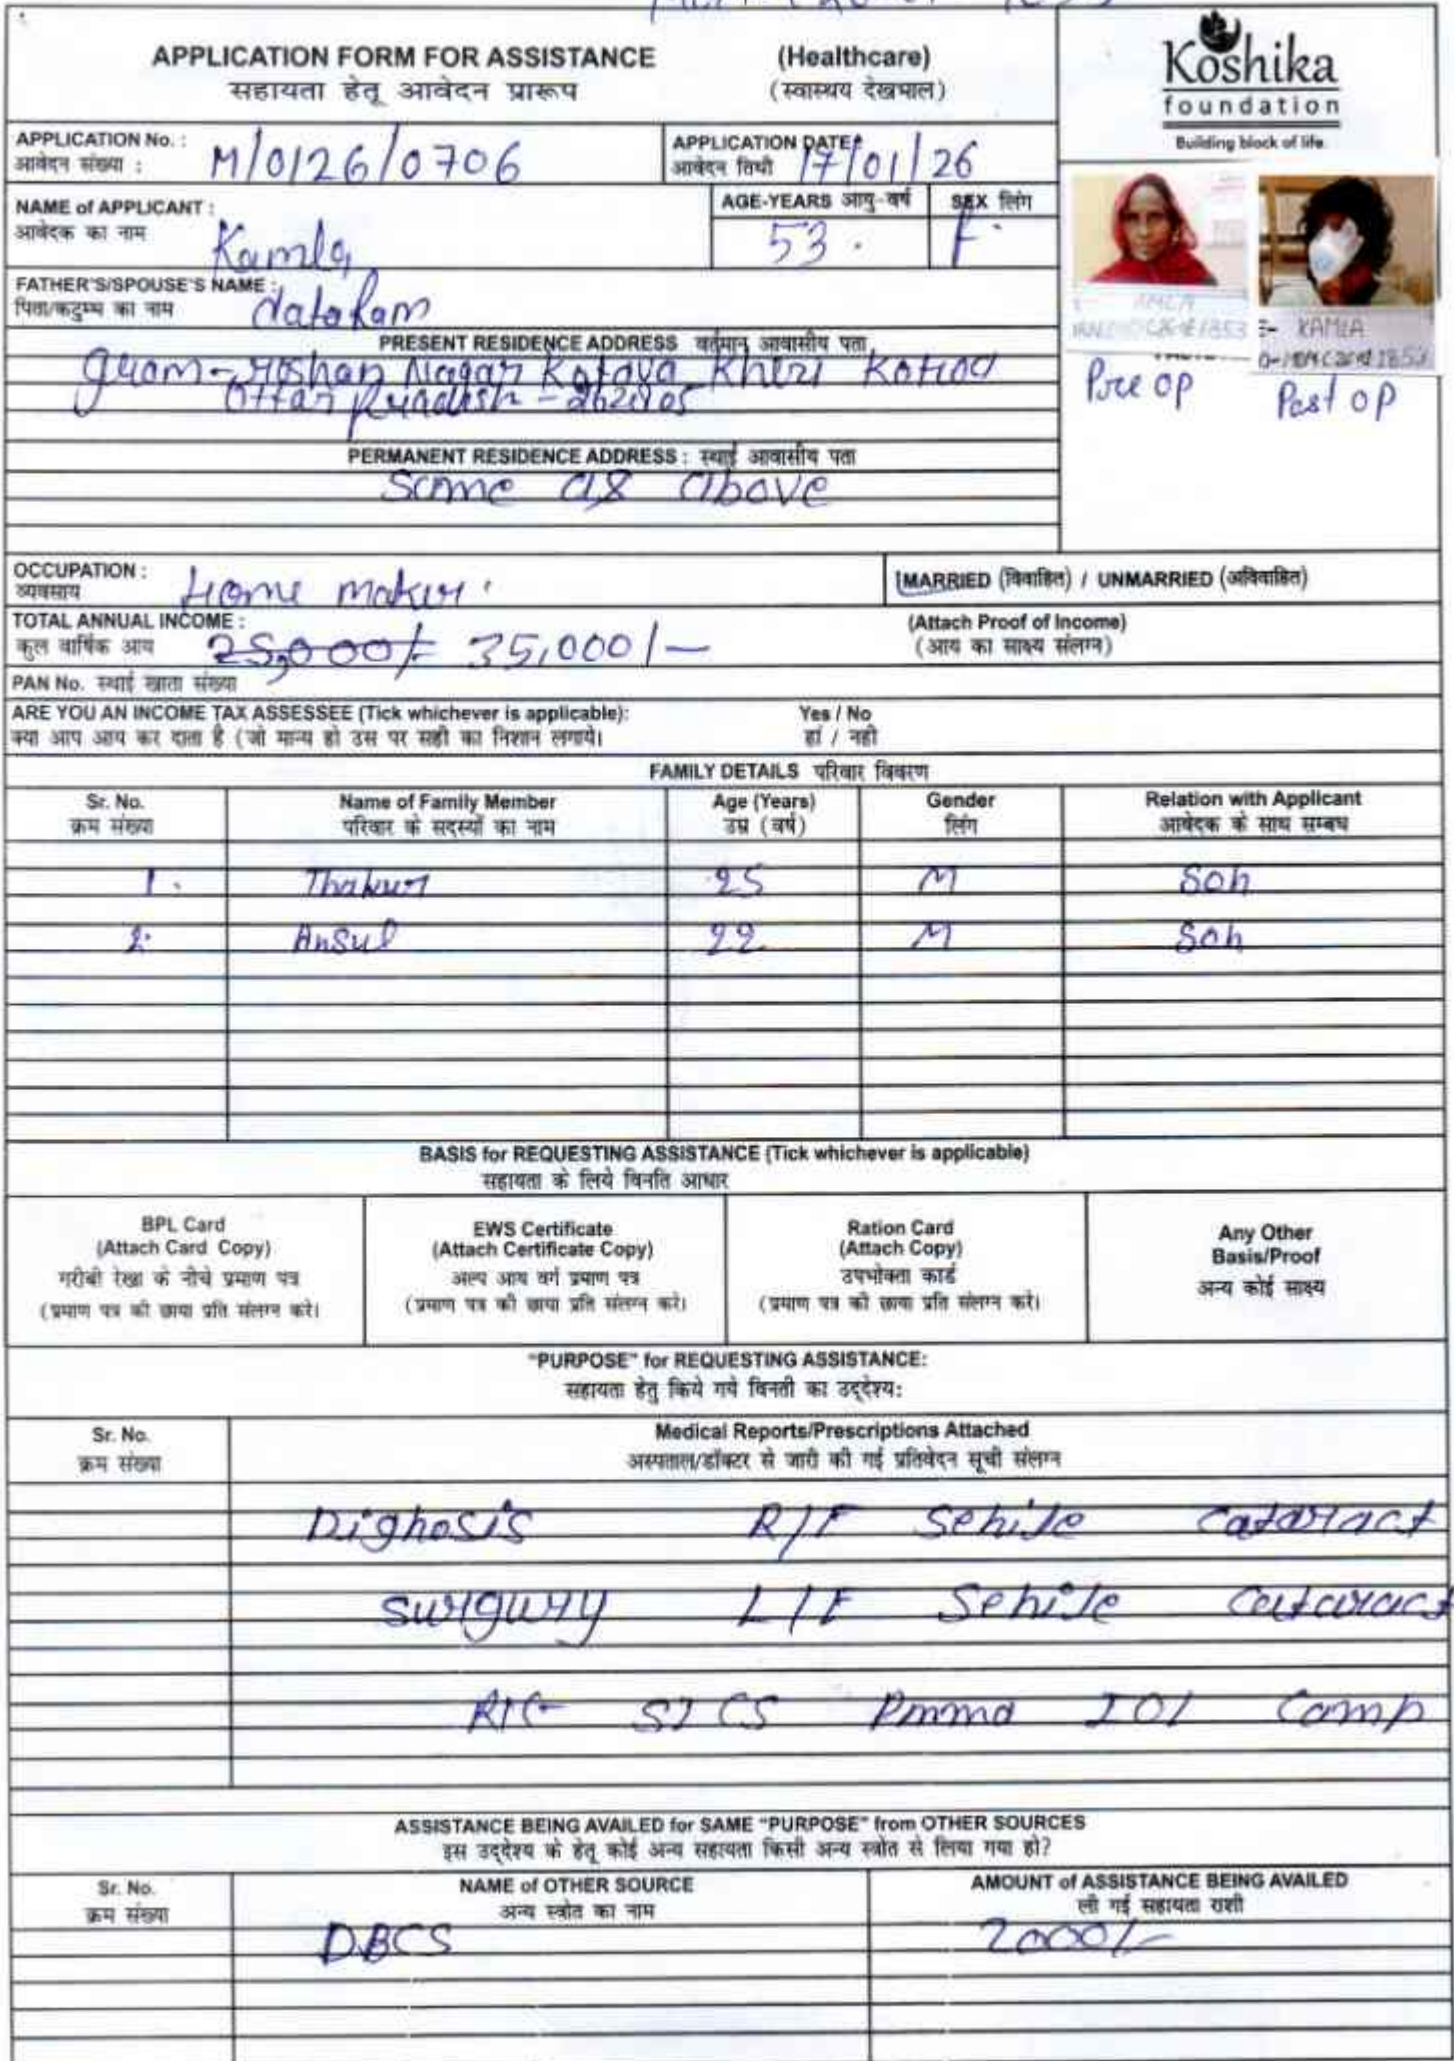 APPLICATION FORM FOR ASSISTANCE (Healthcare)
सहायता हेतू आवेदन प्रारूप (स्वास्थय देखभाल)
Koshika
foundation
Building block of life.
APPLICATION No. :
आवेदन संख्या : M/0126/0706
APPLICATION DATE:
आवेदन तिथी 17/01/26
NAME of APPLICANT :
आवेदक का नाम Kamla
AGE-YEARS आयु-वर्ष SEX लिंग
53. F.
FATHER'S/SPOUSE'S NAME :
पिता/कटुम्ब का नाम dataRam
PRESENT RESIDENCE ADDRESS वर्तमान आवासीय पता
Nagar Kheri
Uttar Pradesh -
KAMLA
Pre op Post op
PERMANENT RESIDENCE ADDRESS : स्थाई आवासीय पता
Same as above
OCCUPATION :
व्यवसाय Home maker.
MARRIED (विवाहित) / UNMARRIED (अविवाहित)
TOTAL ANNUAL INCOME :
कुल वार्षिक आय 25,000/- 35,000/-
(Attach Proof of Income)
(आय का साक्ष्य संलग्न)
PAN No. स्थाई खाता संख्या
ARE YOU AN INCOME TAX ASSESSEE (Tick whichever is applicable): Yes / No
क्या आप आय कर दाता है (जो मान्य हो उस पर सही का निशान लगाये। हां / नही
FAMILY DETAILS परिवार विवरण
Sr. No. Name of Family Member Age (Years) Gender Relation with Applicant
क्रम संख्या परिवार के सदस्यों का नाम उम्र (वर्ष) लिंग आवेदक के साथ सम्बध
1. Thakur 25 M Son
2. Ansul 22 M Son
BASIS for REQUESTING ASSISTANCE (Tick whichever is applicable)
सहायता के लिये विनति आधार
BPL Card
(Attach Card Copy)
गरीबी रेखा के नीचे प्रमाण पत्र
(प्रमाण पत्र की छाया प्रति संलग्न करे।
EWS Certificate
(Attach Certificate Copy)
अल्प आय वर्ग प्रमाण पत्र
(प्रमाण पत्र की छाया प्रति संलग्न करे।
Ration Card
(Attach Copy)
उपभोक्ता कार्ड
(प्रमाण पत्र की छाया प्रति संलग्न करे।
Any Other
Basis/Proof
अन्य कोई साक्ष्य
"PURPOSE" for REQUESTING ASSISTANCE:
सहायता हेतु किये गये विनती का उद्देश्य:
Sr. No. Medical Reports/Prescriptions Attached
क्रम संख्या अस्पताल/डॉक्टर से जारी की गई प्रतिवेदन सूची संलग्न
Dignosis R/E Senile Cataract
Surgury L/E Senile Cataract
R/E SICS Pmma IOL Comp
ASSISTANCE BEING AVAILED for SAME "PURPOSE" from OTHER SOURCES
इस उद्देश्य के हेतू कोई अन्य सहायता किसी अन्य स्त्रोत से लिया गया हो?
Sr. No. NAME of OTHER SOURCE AMOUNT of ASSISTANCE BEING AVAILED
क्रम संख्या अन्य स्त्रोत का नाम ली गई सहायता राशी
DBCS 2000/-